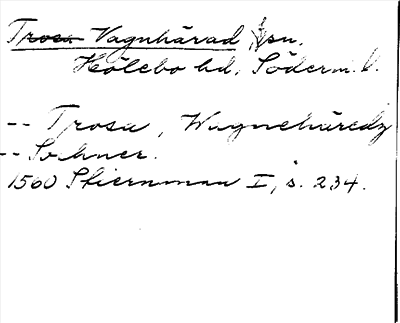 Trosa Vagnhärad, sn.
Hölebo hd, Söderm. l.
-- Trosa, Wagnehäredz
-- Sochner.
1560 Stiernman I, s. 234.